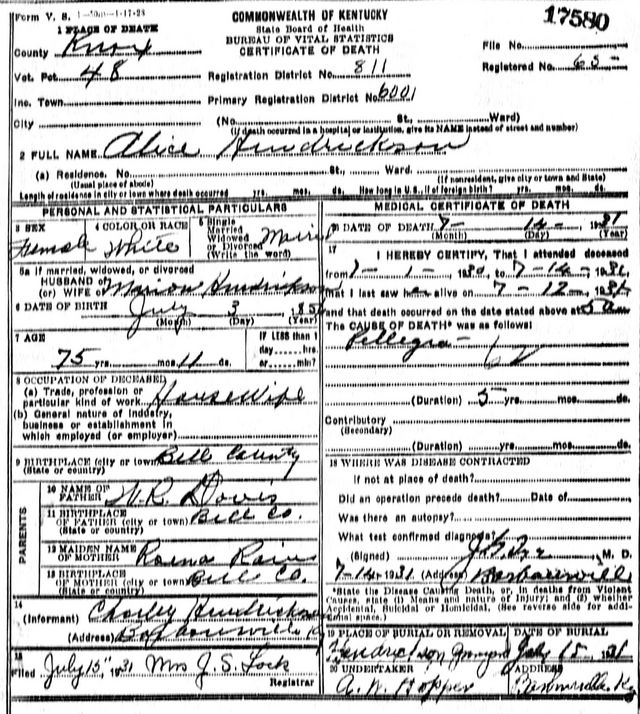 Form V. S. 1-50m-1-17-28
COMMONWEALTH OF KENTUCKY
State Board of Health
BUREAU OF VITAL STATISTICS
CERTIFICATE OF DEATH
17580
1 PLACE OF DEATH
County Knox
File No.
Vot. Pct 48
Registration District No. 811
Registered No. 65
Inc. Town
Primary Registration District No. 6001
City (No. St., Ward)
(If death occurred in a hospital or institution, give its NAME instead of street and number)
2 FULL NAME Alice Hendrickson
(a) Residence. No. St., Ward.
(Usual place of abode) (If nonresident, give city or town and State)
Length of residence in city or town where death occurred yrs. mos. ds. How long in U. S., if of foreign birth? yrs. mos. ds.
PERSONAL AND STATISTICAL PARTICULARS
3 SEX Female
4 COLOR OR RACE White
5 Single
Married
Widowed
or Divorced
(Write the word)
5a If married, widowed, or divorced
HUSBAND of
(or) WIFE of Marion Hendrickson
6 DATE OF BIRTH July 3
(Month) (Day) (Year)
7 AGE
75 yrs. mos. 11 ds.
IF LESS than 1
day hrs.
or min?
8 OCCUPATION OF DECEASED
(a) Trade, profession or
particular kind of work Housewife
(b) General nature of industry,
business or establishment in
which employed (or employer)
9 BIRTHPLACE (city or town) Bell County
(State or country)
PARENTS
10 NAME OF
FATHER W. R. Davis
11 BIRTHPLACE
OF FATHER (city or town) Bell Co.
(State or country)
12 MAIDEN NAME
OF MOTHER
13 BIRTHPLACE
OF MOTHER (city or town) Bell Co.
(State or country)
14
(Informant) Charley Hendrickson
(Address) Barbourville Ky
15
Filed July 15, 1931 Mrs J. S. Lock
Registrar
MEDICAL CERTIFICATE OF DEATH
16 DATE OF DEATH 7- 14- 1931
(Month) (Day) (Year)
17
I HEREBY CERTIFY, That I attended deceased
from 7-1-1930, to 7-14-1931
that I last saw her alive on 7-12-1931
and that death occurred on the date stated above at 5 am
The CAUSE OF DEATH* was as follows:
Pellegra-
(Duration) 5 yrs. mos. ds.
Contributory
(Secondary)
(Duration) yrs. mos. ds.
18 WHERE WAS DISEASE CONTRACTED
If not at place of death?
Did an operation precede death? Date of
Was there an autopsy?
What test confirmed diagnosis?
(Signed) M. D.
7-14-1931 (Address) Barbourville
*State the Disease Causing Death, or, in deaths from Violent
Causes, state (1) Means and nature of Injury; and (2) whether
Accidental, Suicidal or Homicidal. (See reverse side for addi-
tional space.)
19 PLACE OF BURIAL OR REMOVAL DATE OF BURIAL
Hendrickson July 15 1931
20 UNDERTAKER ADDRESS
A. W. Hopper Barbourville, Ky